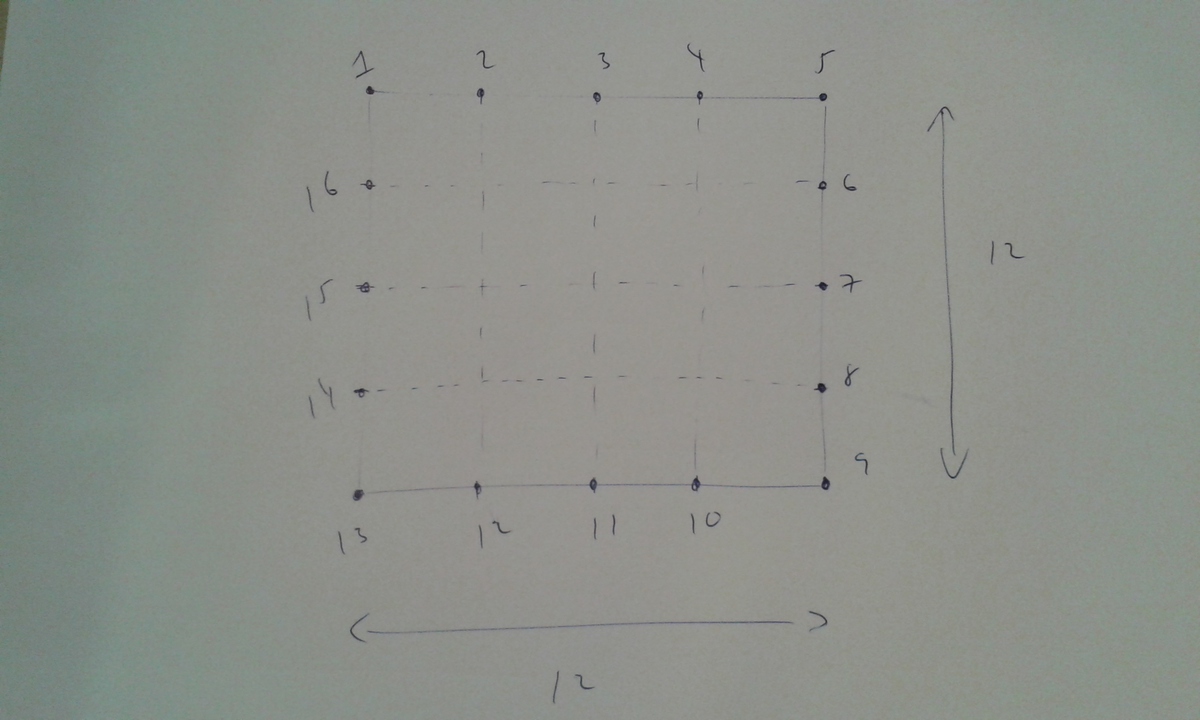 1 2 3 4 5
16 6
15 7
12
14 8
9
13 12 11 10
12